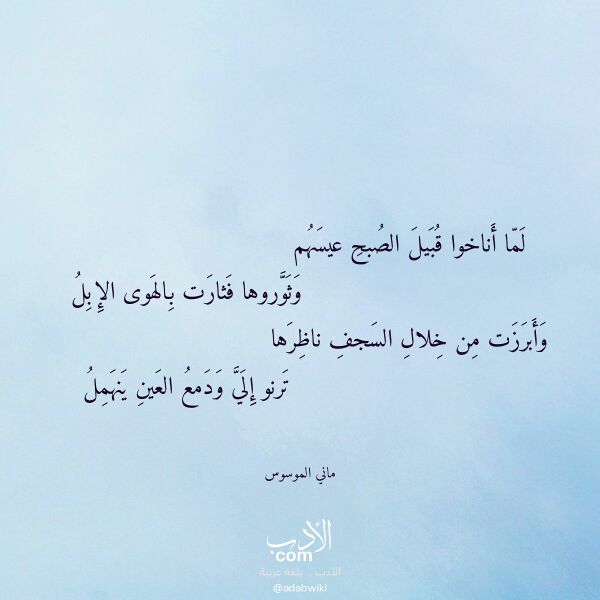 لَمّا أَناخوا قُبَيلَ الصُبحِ عيسَهُم
وَثَوَّروها فَثارَت بِالهَوى الإِبِلُ
وَأَبرَزَت مِن خِلالِ السَجفِ ناظِرَها
تَرنو إِلَيَّ وَدَمعُ العَينِ يَنهَمِلُ
ماني الموسوس
الأدب
com
الأدب .. بلغة عربية
@adabwiki